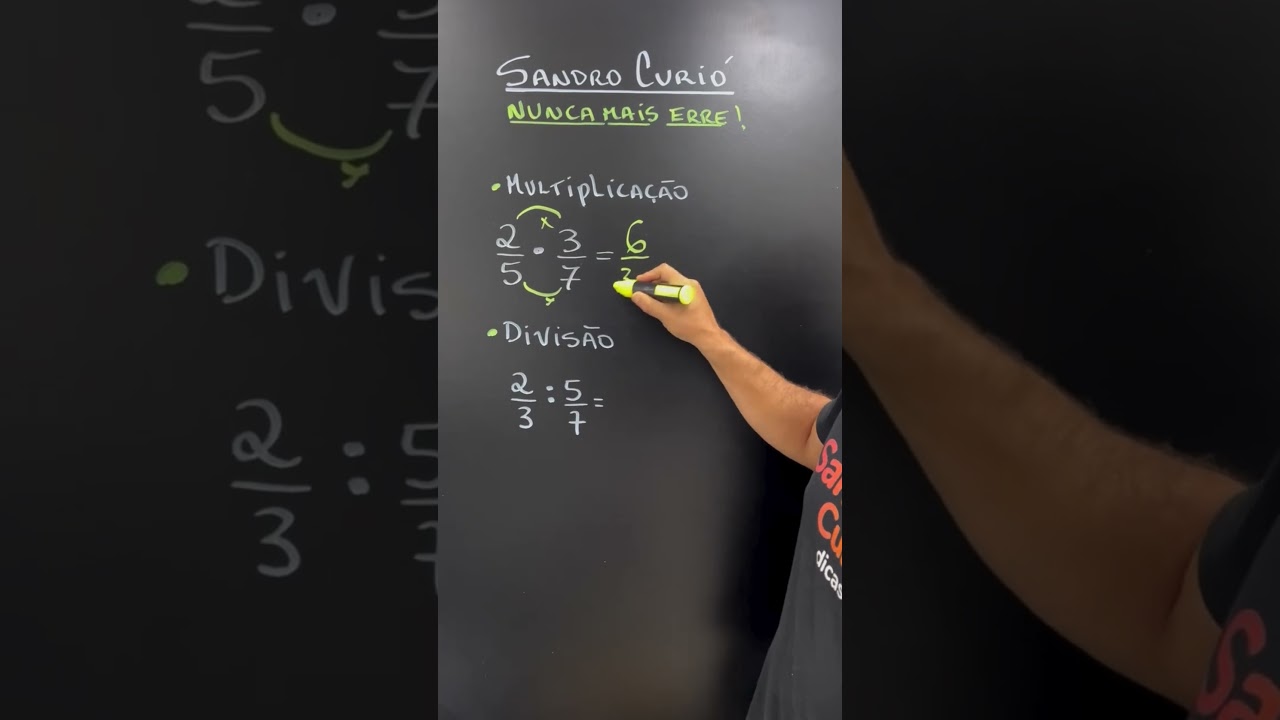 SANDRO CURIÓ
NUNCA MAIS ERRE!
• MULTIPLICAÇÃO
2/5 • 3/7 = 6/3
x
x
• DIVISÃO
2/3 : 5/7 =
dicas